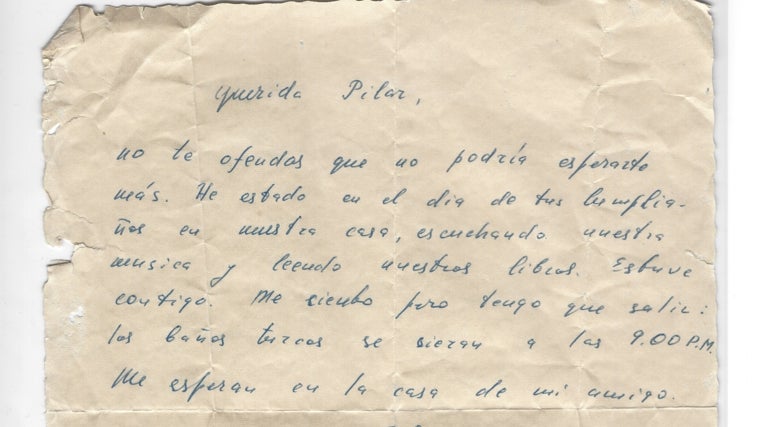 querida Pilar,
no te ofendas que no podría esperarte
más. He estado en el dia de tus Cumplia-
ños en nuestra casa, escuchando nuestra
musica y leendo nuestros libros. Estuve
contigo. Me siento pero tengo que salir:
los baños turcos se sieran a las 9.00 P.M.
Me esperan en la casa de mi amigo.